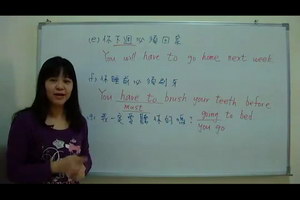 (e) 你下週必須回家
You will have to go home next week.
(f) 你睡前必須刷牙
You have to brush your teeth before
must
going to bed
(g) 我一定要聽你的嗎?
you go